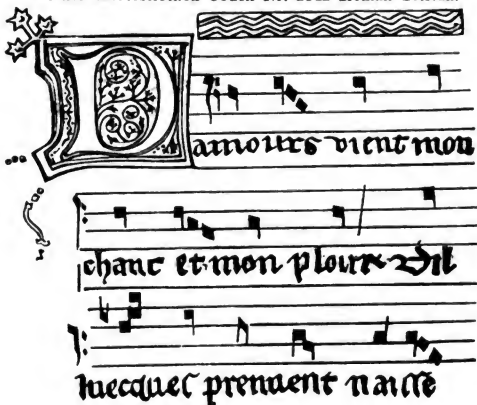 Damours vient mon
chant et mon plour Dil
luecques prennent naisse